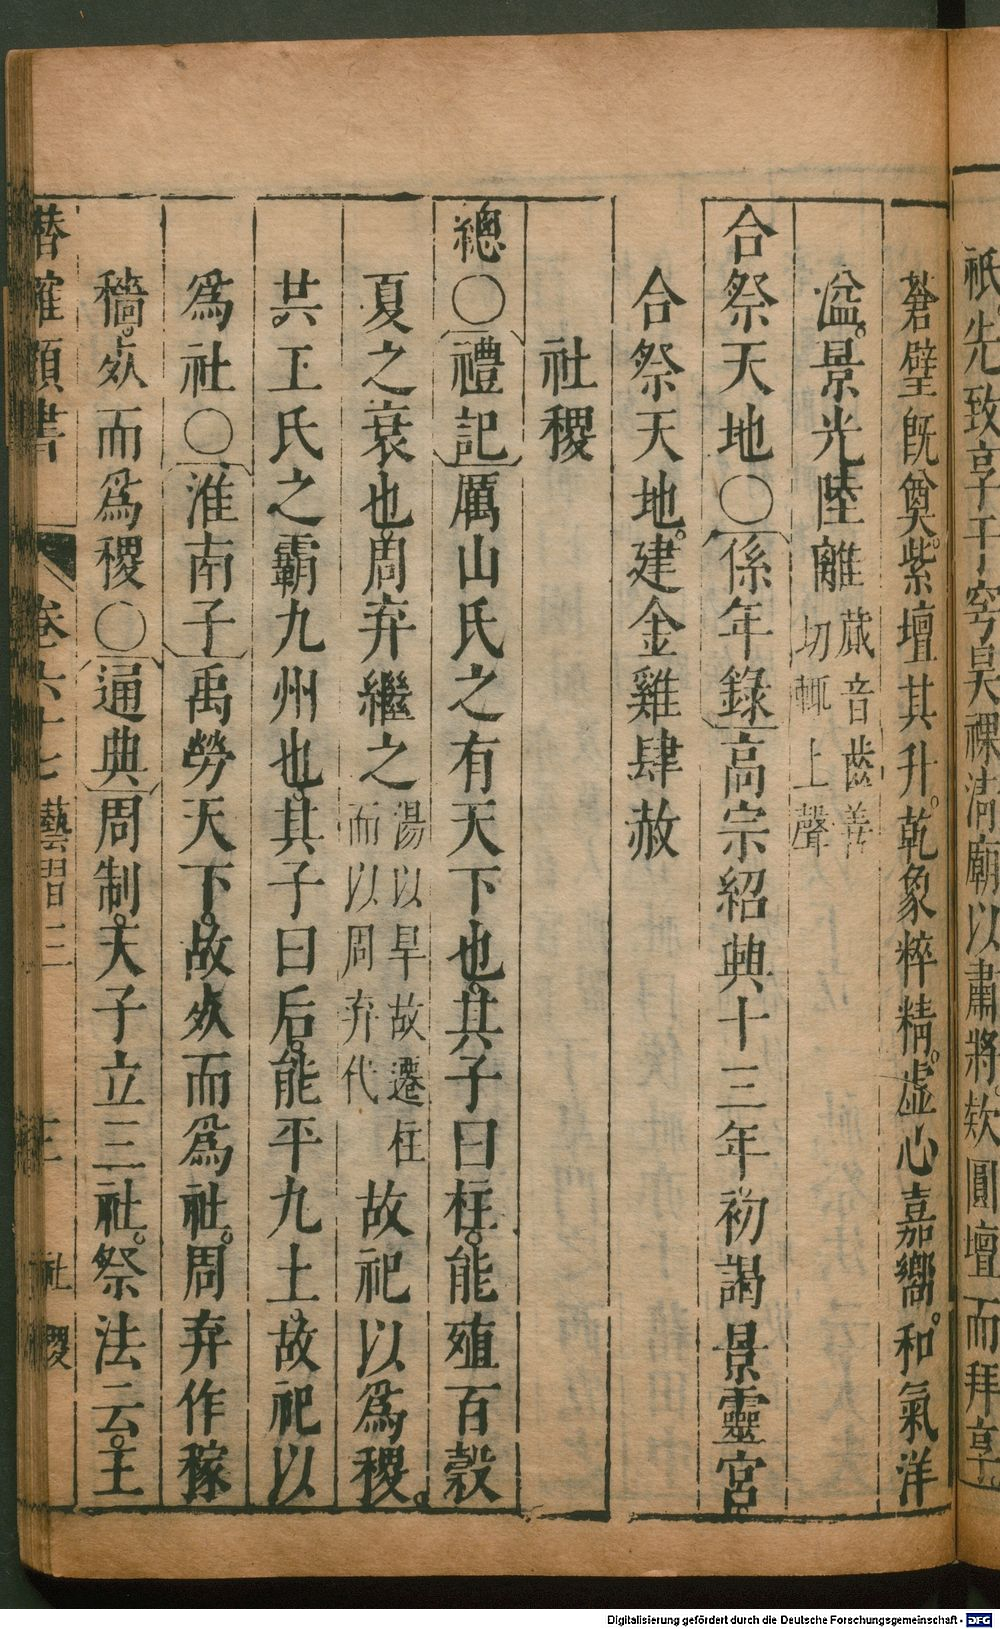 祇先致享于穹昊祼清廟以肅將欵圓壇而拜享
蒼璧旣奠紫壇其升乾象粹精虛心嘉嚮和氣洋
溢景光陸離蕆音蔵善切輒上聲
合祭天地〇係年錄高宗紹興十三年初謁景靈宮
合祭天地建金雞肆赦
社稷
總〇禮記厲山氏之有天下也其子曰柱能殖百穀
夏之衰也周弃繼之湯以旱故遷柱而以周弃代故祀以為稷
共工氏之霸九州也其子曰后能平九土故祀以
為社〇淮南子禹勞天下故𣦸而為社周弃作稼
穡𣦸而為稷〇通典周制天子立三社祭法云王
潛確類書 卷六十七 藝習三 三 社稷
Digitalisierung gefördert durch die Deutsche Forschungsgemeinschaft - DFG